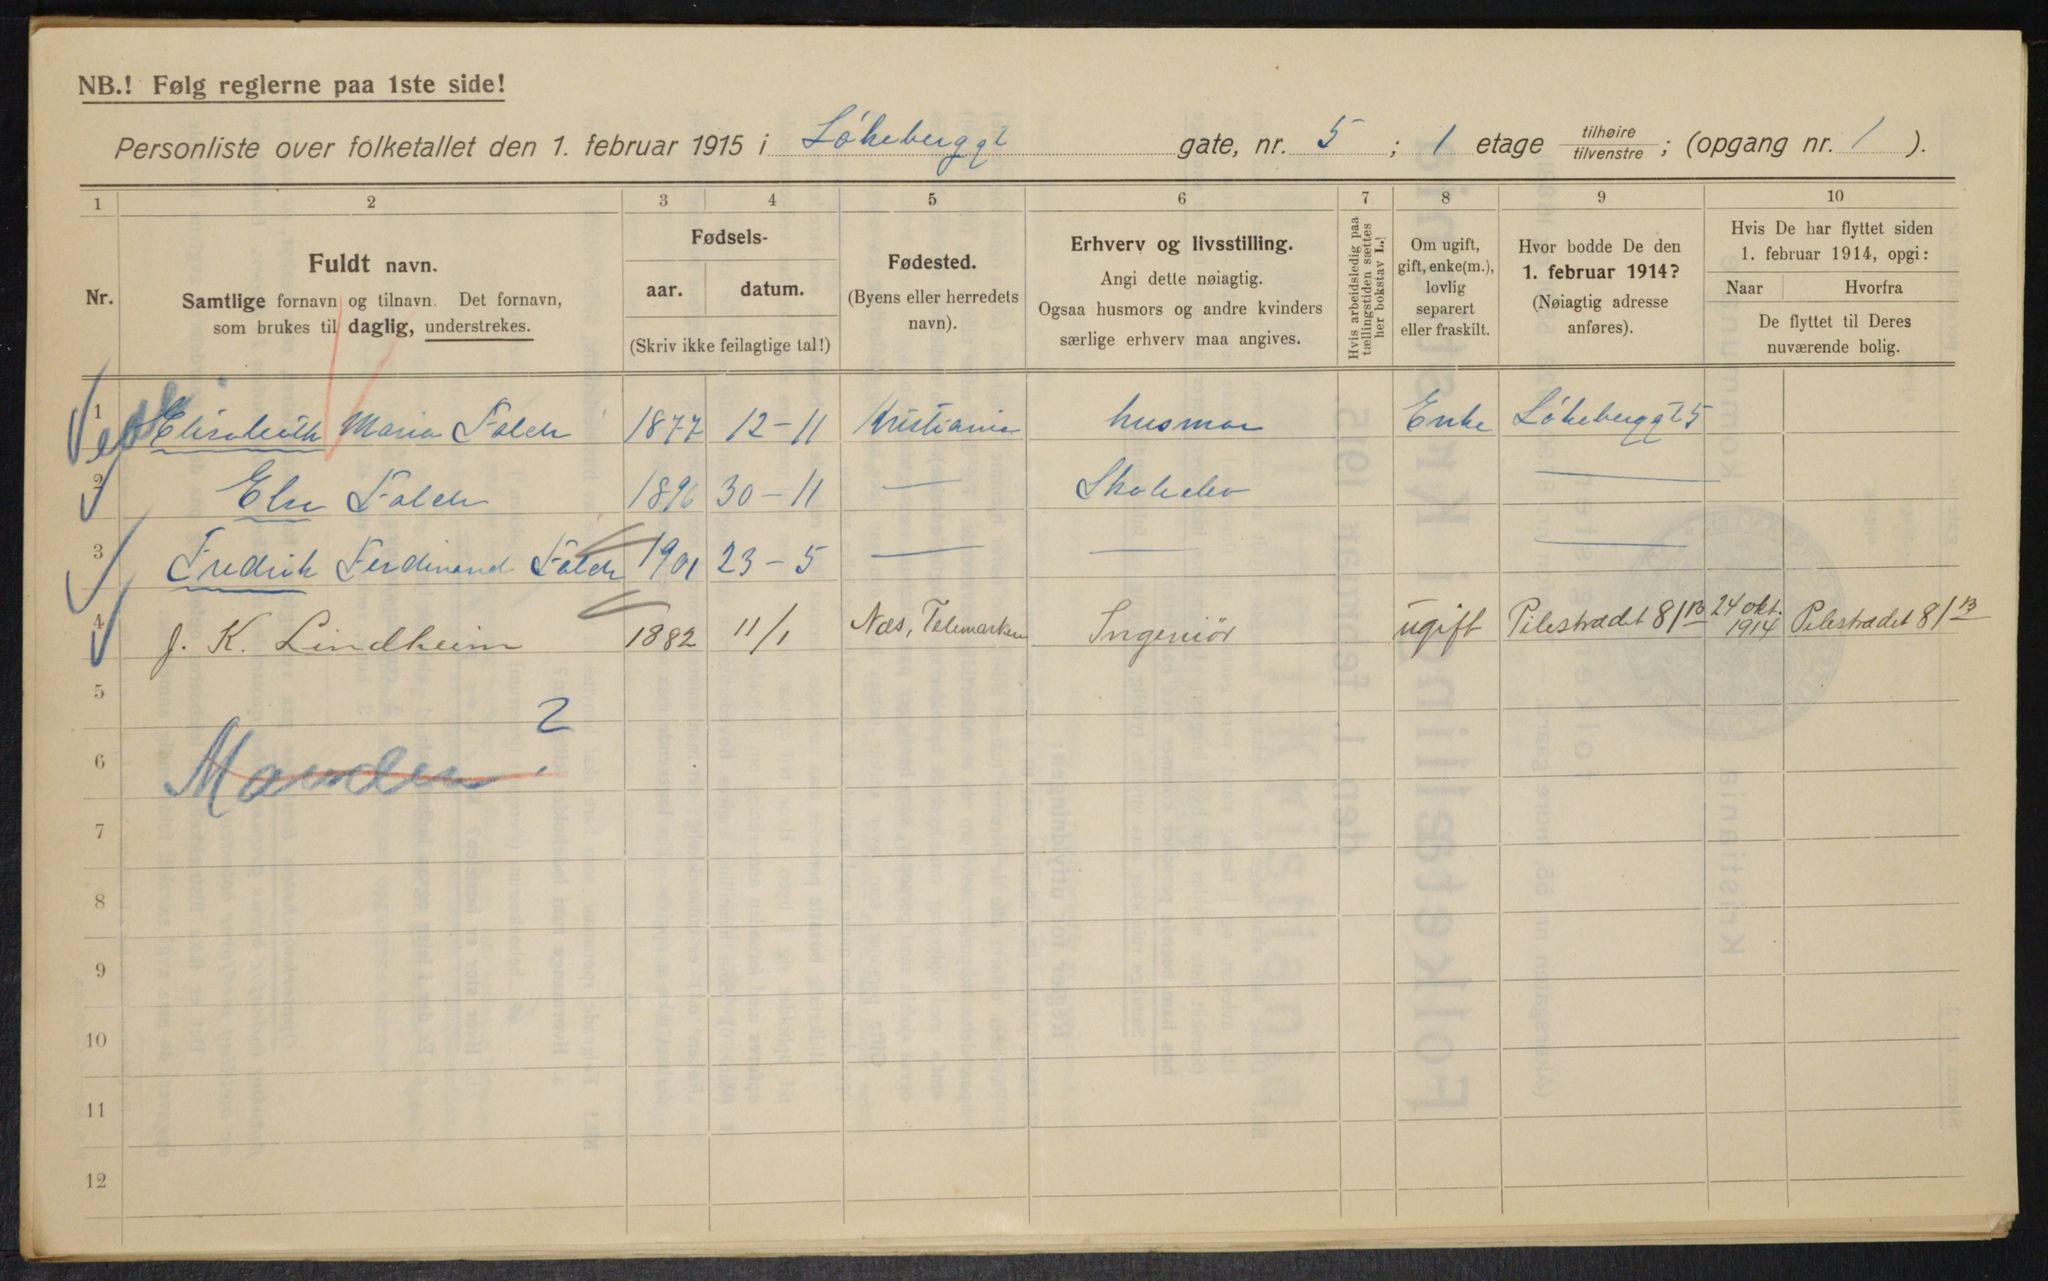 NB.! Følg reglerne paa 1ste side!
Personliste over folketallet den 1. februar 1915 i Løkeberggt gate, nr. 5 ; 1 etage tilhøire tilvenstre ; (opgang nr. 1 ).
1 2 3 4 5 6 7 8 9 10
Nr.
Fuldt navn.
Samtlige fornavn og tilnavn. Det fornavn,
som brukes til daglig, understrekes.
Fødsels-
aar. datum.
(Skriv ikke feilagtige tal!)
Fødested.
(Byens eller herredets
navn).
Erhverv og livsstilling.
Angi dette nøiagtig.
Ogsaa husmors og andre kvinders
særlige erhverv maa angives.
Hvis arbeidsledig paa
tællingstiden sættes
her bokstav L.!
Om ugift,
gift, enke(m.),
lovlig
separert
eller fraskilt.
Hvor bodde De den
1. februar 1914?
(Nøiagtig adresse
anføres).
Hvis De har flyttet siden
1. februar 1914, opgi:
Naar Hvorfra
De flyttet til Deres
nuværende bolig.
1 Elisabeth Maria Falch 1877 12-11 Kristiania husmor Enke Løkeberggt 5
2 Else Falch 1896 30-11 — Skoleelev —
3 Fredrik Ferdinand Falch 1901 23-5 — — —
4 J. K. Lindheim 1882 11/1 Næs, Telemarken Ingeniör ugift Pilestrædet 81 B 24 okt. 1914 Pilestrædet 81 B
5
2
6
7
8
9
10
11
12